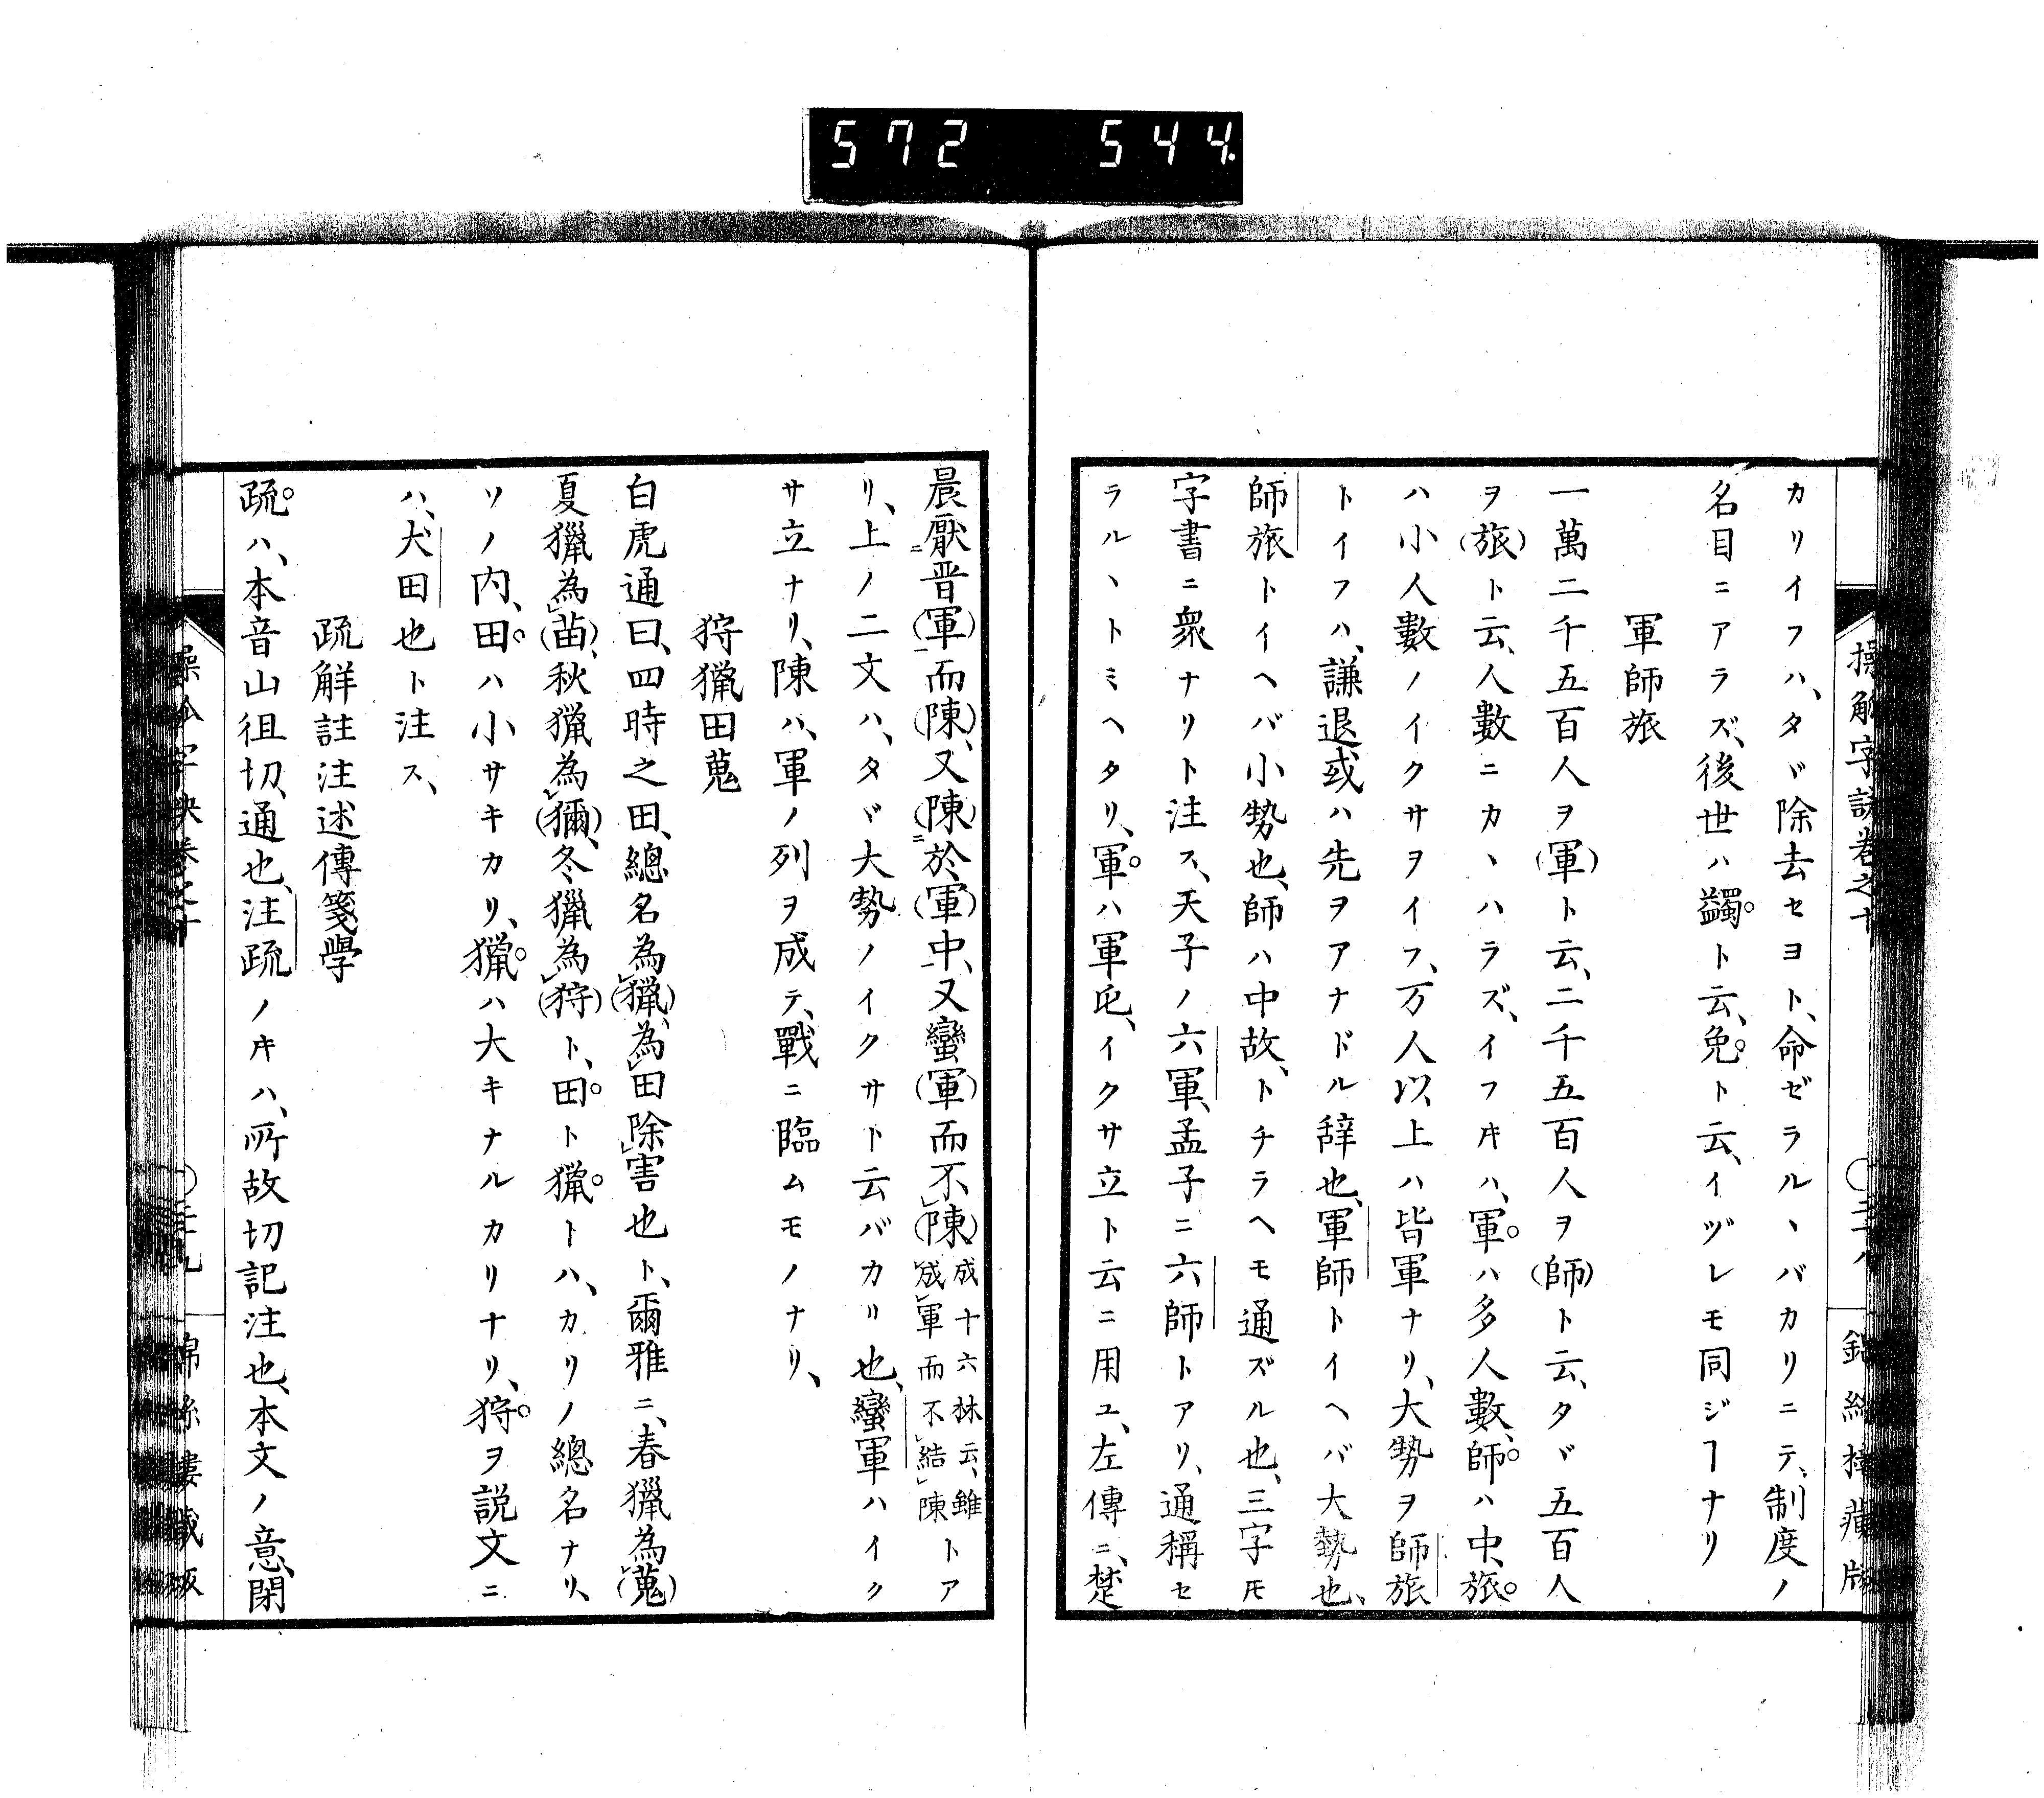 572 544.
カリイフハ、タヾ除去セヨト、命ゼラルヽバカリニテ、制度ノ
名目ニアラズ、後世ハ蠲ト云、免ト云、イヅレモ同ジヿナリ
軍師旅
一萬二千五百人ヲ(軍)ト云、二千五百人ヲ(師)ト云、タヾ五百人
ヲ(旅)ト云、人數ニカヽハラズ、イフ𪜈ハ、軍ハ多人數、師ハ中、旅
ハ小人數ノイクサヲイフ、万人以上ハ皆軍ナリ、大勢ヲ師旅
トイフハ、謙退或ハ先ヲアナドル辞也、軍師トイヘバ大勢也、
師旅トイヘバ小勢也、師ハ中故、トチラヘモ通ズル也、三字𪜈
字書ニ衆ナリト注ス、天子ノ六軍、孟子ニ六師トアリ、通稱セ
ラルヽトミヘタリ、軍ハ軍屯、イクサ立ト云ニ用ユ、左傳ニ、楚
晨厭晋(軍)而(陳)、又(陳)於(軍)中、又蠻(軍)而不(陳)成十六林云、雖成軍而不結陳トア
リ、上ノ二文ハ、タヾ大勢ノイクサト云バカリ也、蠻軍ハイク
サ立ナリ、陳ハ、軍ノ列ヲ成テ、戰ニ臨ムモノナリ、
狩獵田蒐
白虎通曰、四時之田、總名為(獵)、為田除害也ト、爾雅ニ、春獵為(蒐)
夏獵為(苗)、秋獵為(獮)、冬獵為(狩)ト、田ト獵トハ、カリノ總名ナリ、
ソノ内、田ハ小サキカリ、獵ハ大キナルカリナリ、狩ヲ説文ニ
ハ、犬田也ト注ス、
疏解註注述傳箋學
疏ハ、本音山徂切、通也、注疏ノ𪜈ハ、所故切記注也、本文ノ意、閉